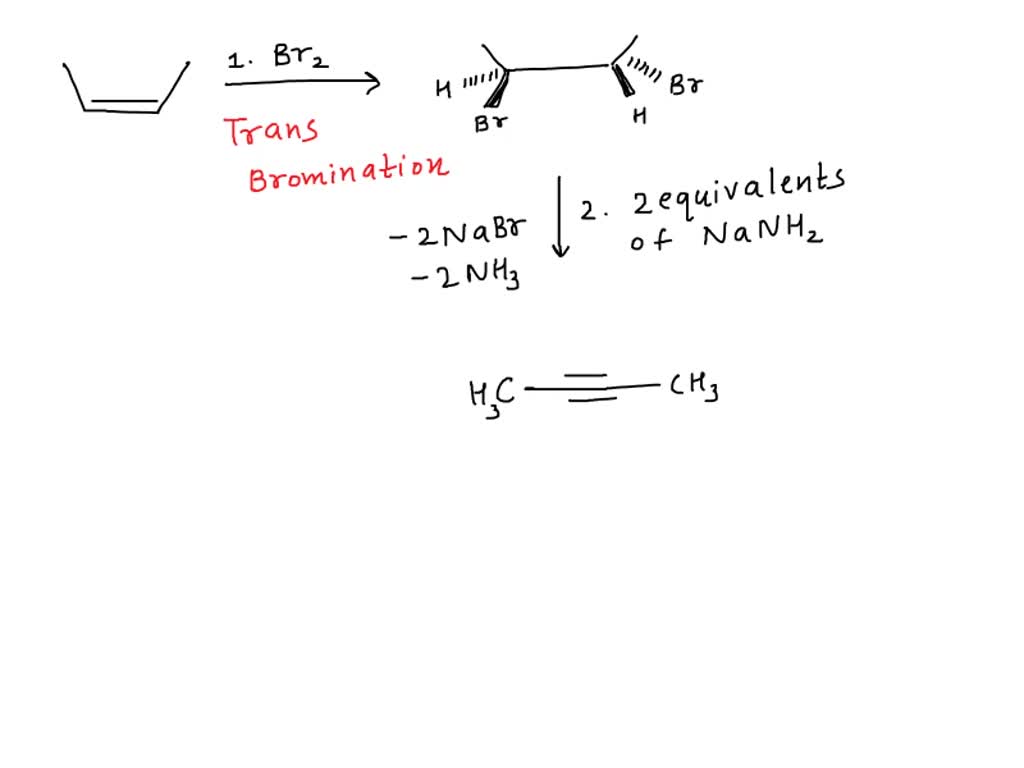 1. Br2
Trans
Bromination
H
Br
Br
H
-2NaBr
-2NH3
2. 2equivalents
of NaNH2
H3C
CH3